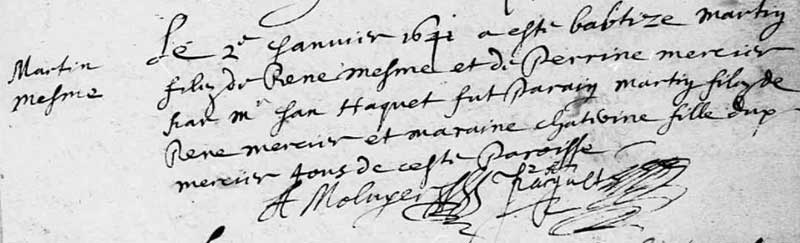 Martin
mesme
Le 2e Janvier 1641 a este baptize martin
filz de Rene mesme et de Perrine mercier
par mr Jan Haquet fut Parain martin filz de
Rene mercier et maraine Catrine fille dud
mercier tous de ceste Paroisse